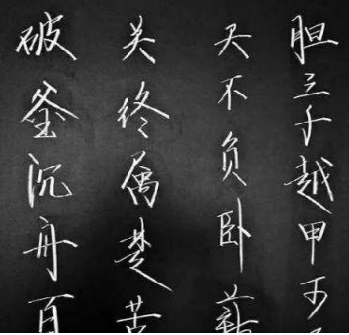 破釜沉舟百
关终属楚苦
天不负卧薪
胆三千越甲可